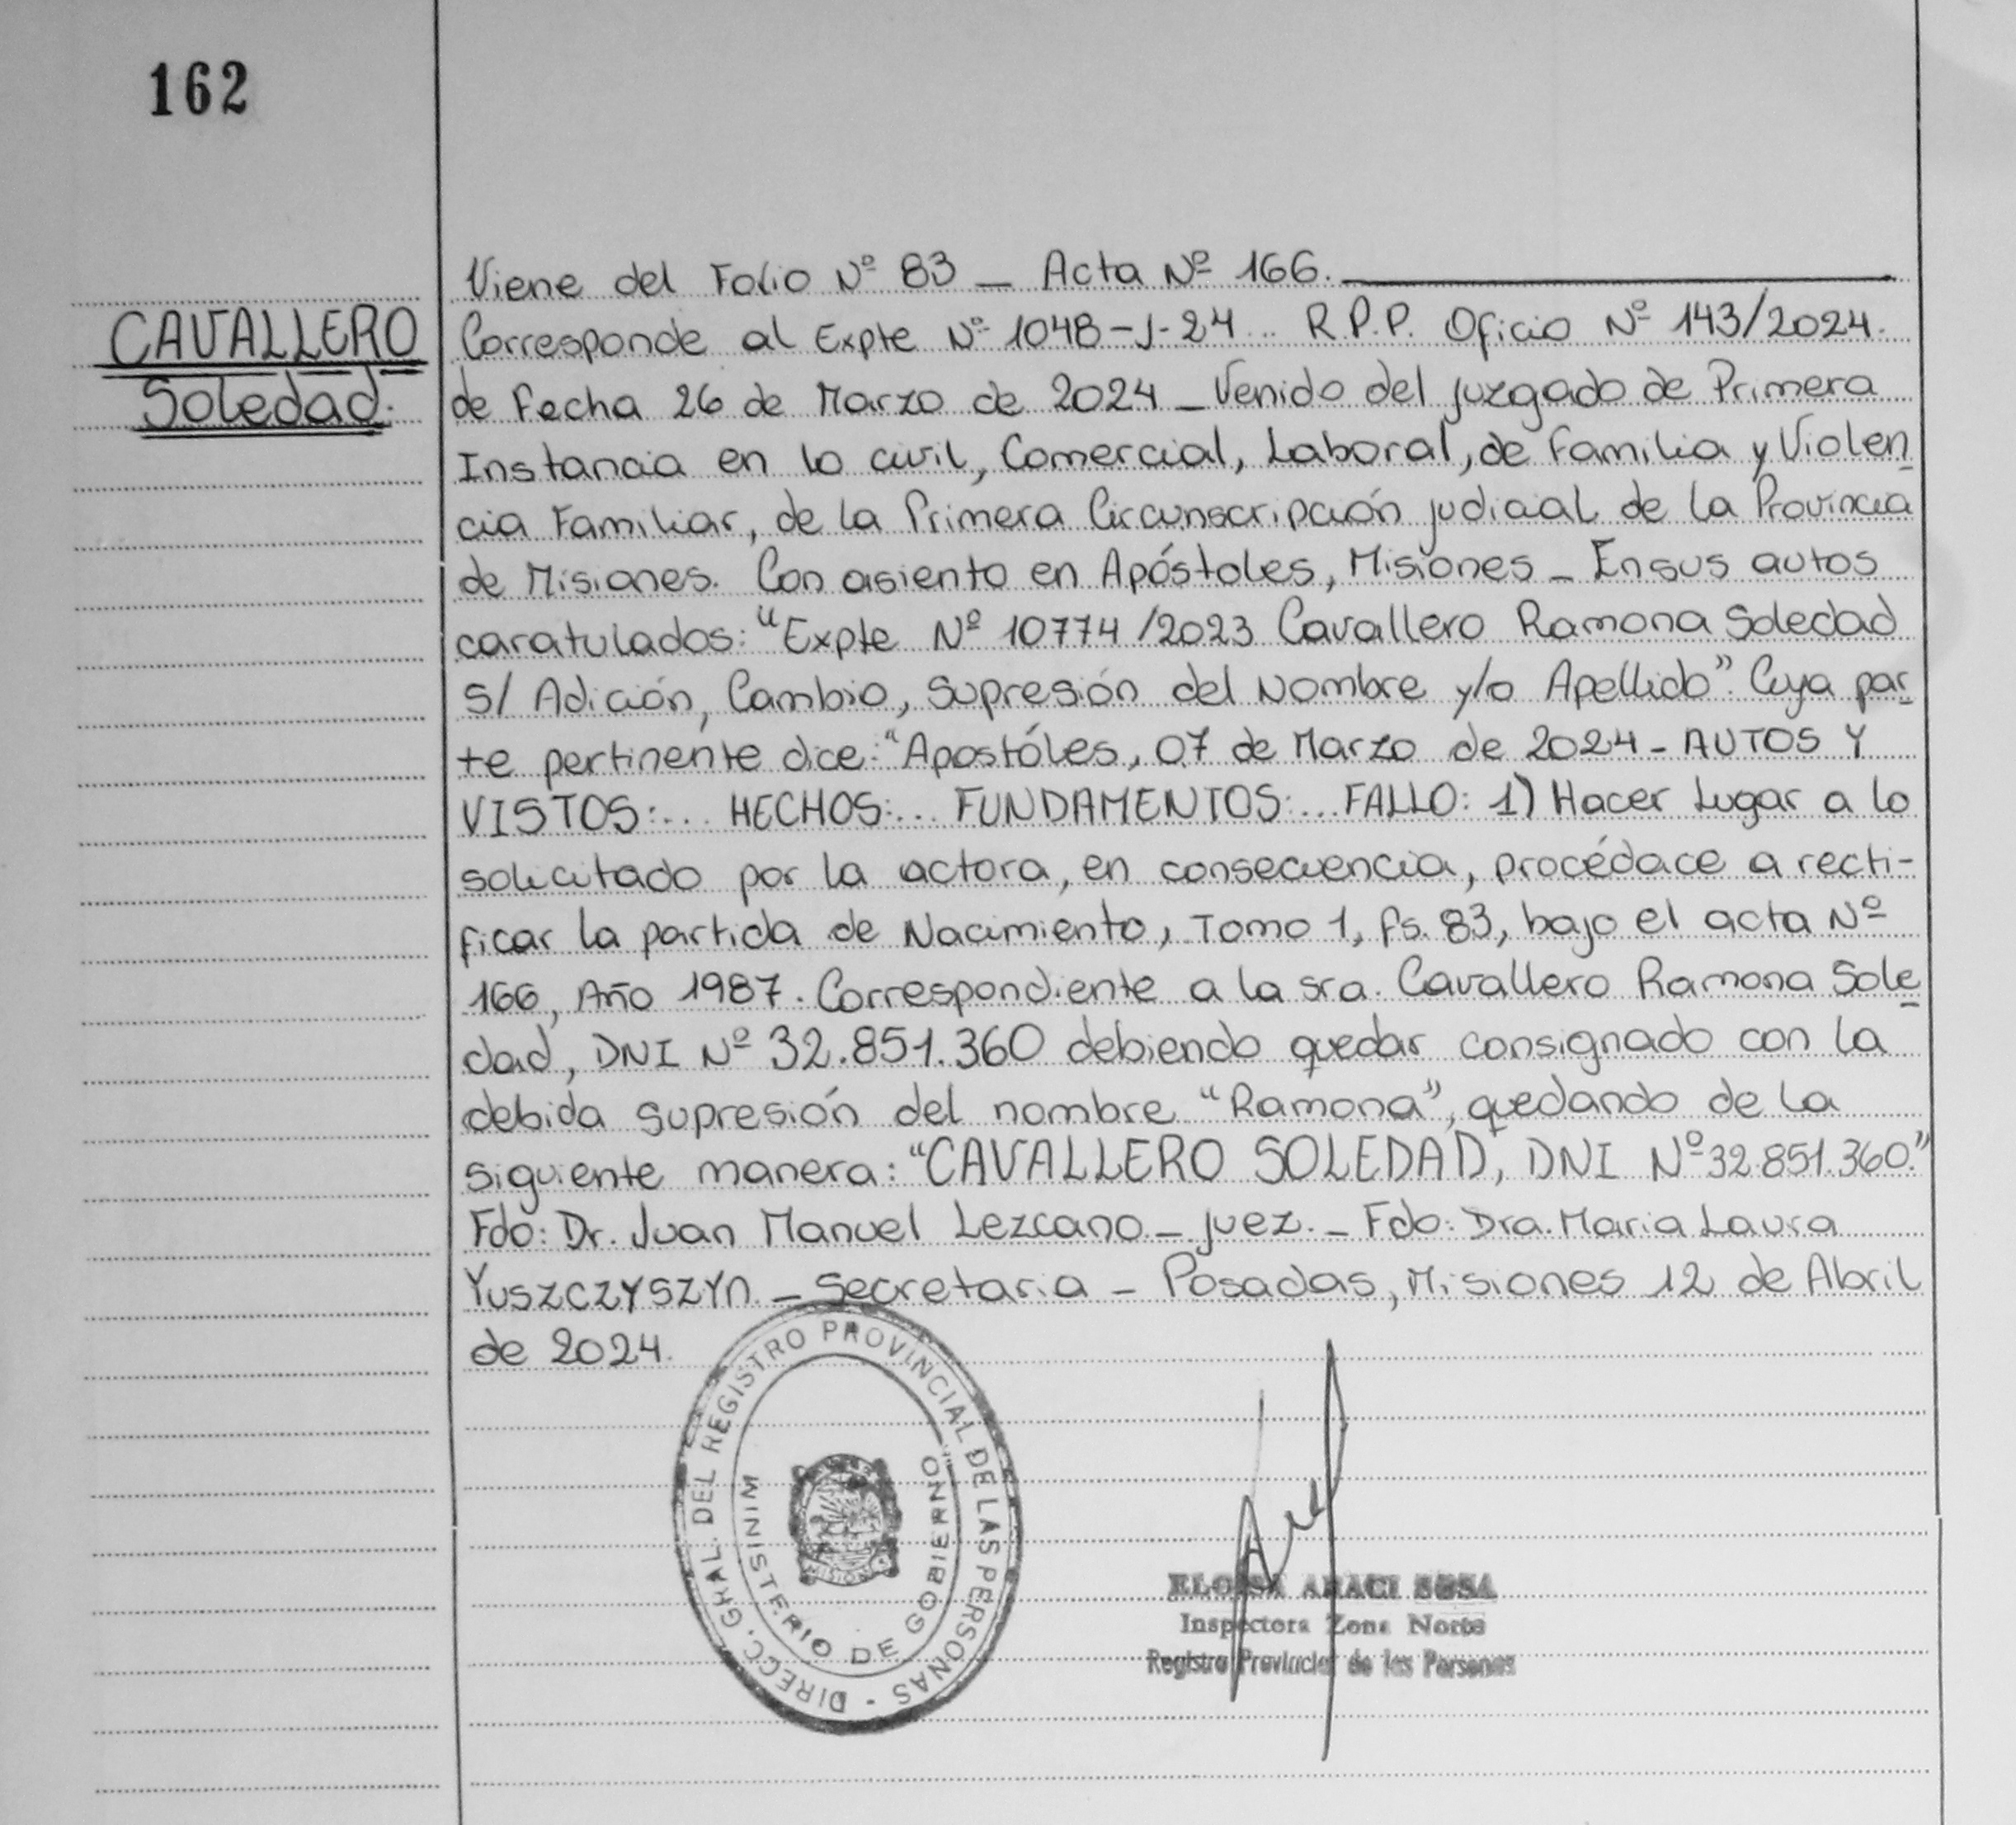 162
CAVALLERO
Soledad.
Viene del Folio Nº 83 _ Acta Nº 166.
Corresponde al Expte Nº 1048-J-24... R.P.P. Oficio Nº 143/2024.
de Fecha 26 de Marzo de 2024 _ Venido del juzgado de Primera
Instancia en lo civil, Comercial, Laboral, de Familia y Violen
cia Familiar, de la Primera Circunscripción judicial de la Provincia
de Misiones. Con asiento en Apóstoles, Misiones _ En sus autos
caratulados: "Expte Nº 10774/2023 Cavallero Ramona Soledad
S/ Adición, Cambio, Supresión del Nombre y/o Apellido". Cuya par
te pertinente dice: "Apostóles, 07 de Marzo de 2024 - AUTOS Y
VISTOS:... HECHOS:... FUNDAMENTOS:... FALLO: 1) Hacer Lugar a lo
solicitado por la actora, en consecuencia, procédace a recti-
ficar la partida de Nacimiento, Tomo 1, fs. 83, bajo el acta Nº
166, Año 1987. Correspondiente a la sra. Cavallero Ramona Sole
dad, DNI Nº 32.851.360 debiendo quedar consignado con la
debida supresión del nombre "Ramona", quedando de la
siguiente manera: "CAVALLERO SOLEDAD, DNI Nº 32.851.360."
Fdo: Dr. Juan Manuel Lezcano _ juez. _ Fdo: Dra. Maria Laura
YUSZCZYSZYN. _ Secretaria - Posadas, Misiones 12 de Abril
de 2024.
DIRECC. GRAL. DEL REGISTRO PROVINCIAL DE LAS PERSONAS -
MINISTERIO DE GOBIERNO
MISIONES
ELOISA ARACI SOSA
Inspectora Zona Norte
Registro Provincial de las Personas